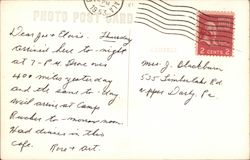 PHOTO POST CARD
Dear Jo & Elvis. Thursday
arrived here to-night
at 7-P.M. Drove over
400 miles yesterday
and the same to-day
Will arrive at Camp
to-morrow noon.
Had dinner in this
cafe. Rose & Art.
Mrs J. Blackburn
535 Timberlake Rd
Upper Darby Pa.
2 CENTS 2